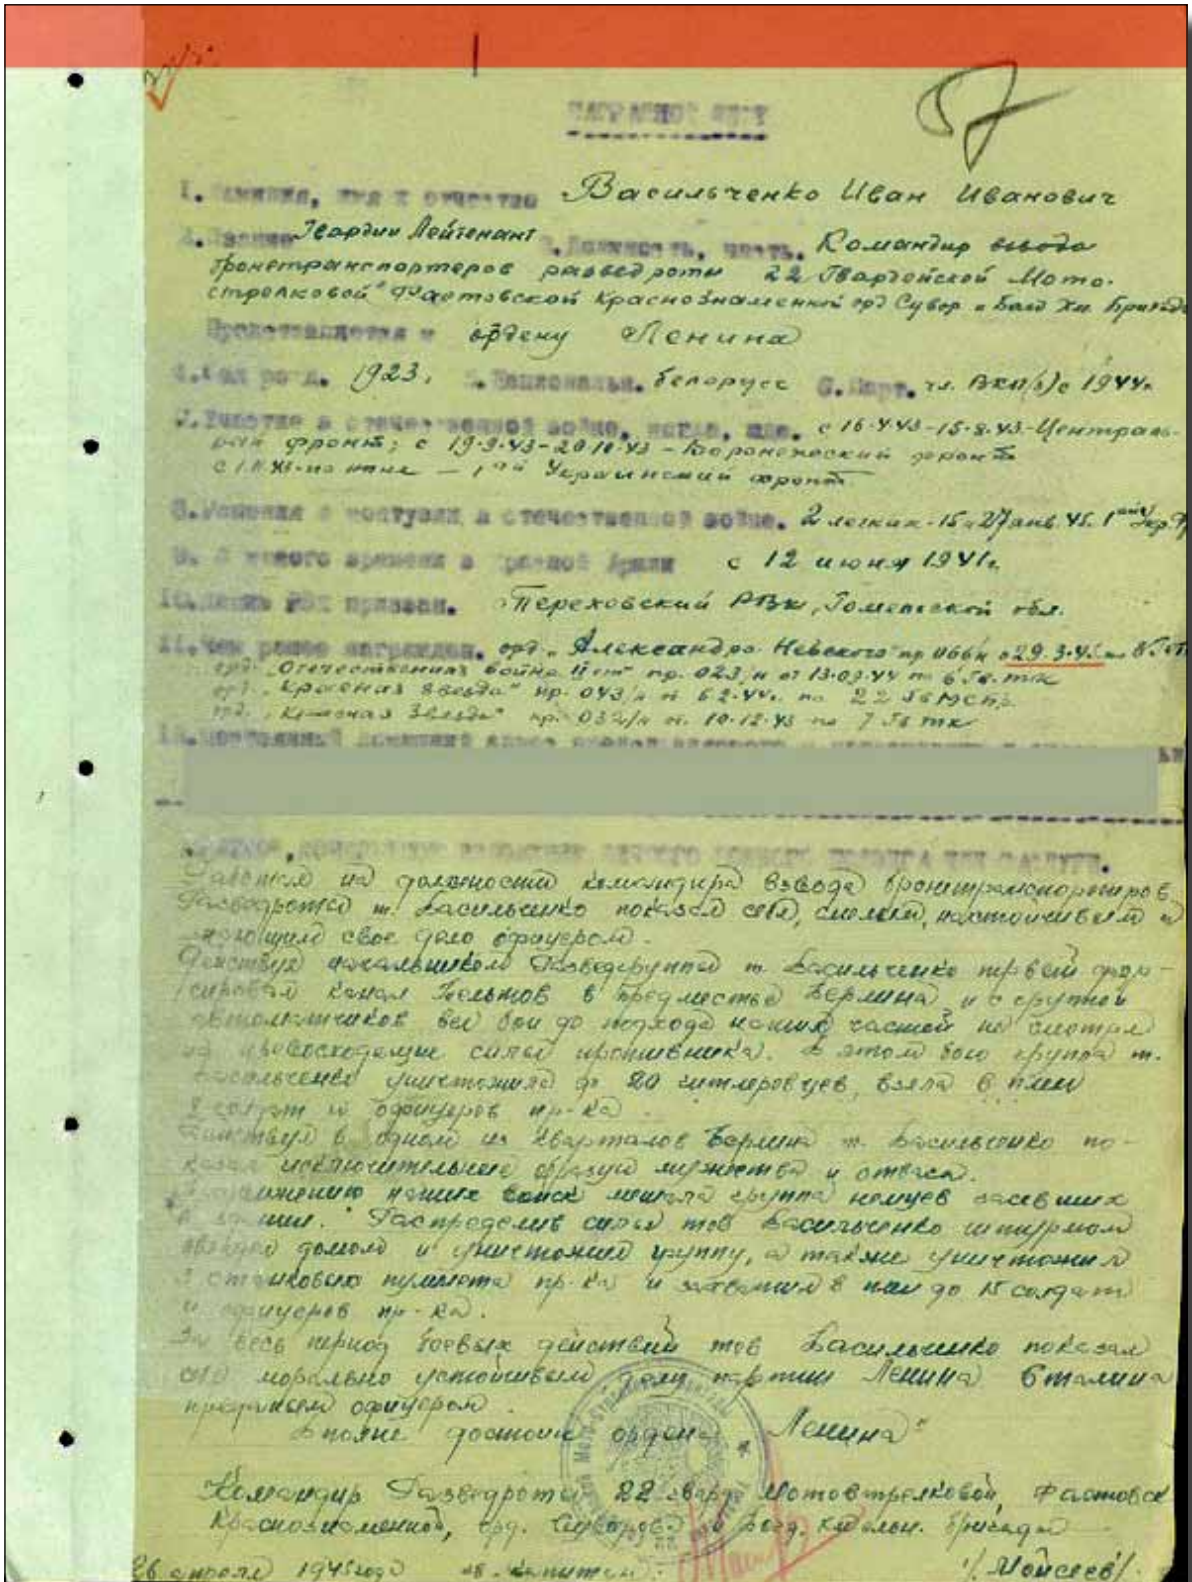 НАГРАДНОЙ ЛИСТ
1. Фамилия, имя и отчество Васильченко Иван Иванович
2. Звание Гвардии Лейтенант 3. Должность, часть. Командир взвода
бронетранспортеров разведроты 22 Гвардейской Мото-
стрелковой Фастовской Краснознаменной орд Сувор и Богд Хм. Бригады
Представляется к ордену Ленина
4. Год рожд. 1923. 5. Национальн. белорусс 6. Парт. чл. ВКП(б) с 1944г.
7. Участие в отечественной войне, когда, где. с 16-4-43-15-8-43-Централь-
ный фронт; с 19-9-43-20-10-43 - Воронежский фронт
с 1.11.43-по ныне - 1ый Украинский фронт
8. Ранения и контузии в отечественной войне. 2 легких-15 и 27 янв. 45. 1ый Укр.
9. С какого времени в Красной Армии с 12 июня 1941г.
10. Каким РВК призван. Тереховский РВК, Гомельской обл.
11. Чем ранее награжден. орд. „Александра Невского" пр 066/н 29.3.45
орд. „Отечественная война II ст" пр. 023/н от 13.09.44 по 6 Гв. тк
орд. „Красная Звезда" пр. 043/н от 6.2.44г. по 22 Гв мсбр
орд. „Красная Звезда" пр. 032/н от 10.12.43 по 7 Гв тк
12. Постоянный домашний адрес
Краткое, конкретное изложение личного боевого подвига или заслуги.
Работая на должности командира взвода бронетранспортеров
Разведроты т. Васильченко показал себя, смелым, настойчивым и
знающим свое дело офицером.
Действуя начальником Разведгруппы т. Васильченко первый фор-
сировал канал Тельтов в предместье Берлина и с группой
автоматчиков вел бой до подхода наших частей не смотря
на превосходящие силы противника. В этом бою группа т.
Васильченко уничтожила до 20 гитлеровцев, взяла в плен
8 солдат и офицеров пр-ка.
Действуя в одном из кварталов Берлина т. Васильченко по-
казал исключительные образцы мужества и отваги.
Продвижению наших войск мешала группа немцев засевших
в здании. Распределив силы тов Васильченко штурмом
овладел домом и уничтожил группу, а также уничтожил
3 станковых пулемета пр-ка и захватил в плен до 15 солдат
и офицеров пр-ка.
За весь период боевых действий тов Васильченко показал
себя морально устойчивым делу партии Ленина Сталина
преданым офицером.
Вполне достоин ордена „Ленина"
Командир Разведроты 22 гвард Мотострелковой, Фастовск
Краснознаменной, орд. Суворова и Богд. Хмельн. бригады
26 апреля 1945 года гв. капитан /Моисеев/.